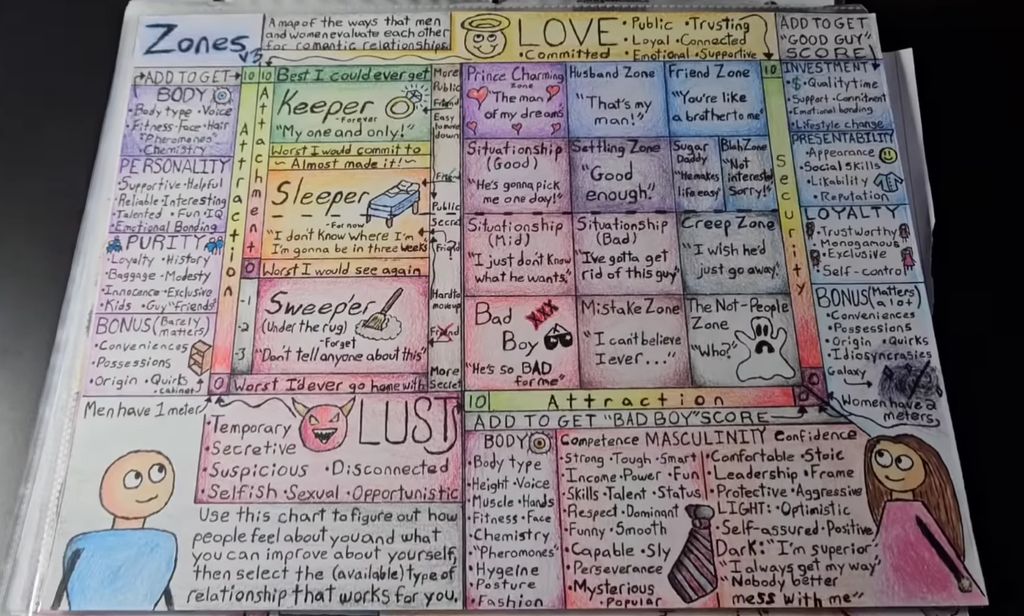 Zones
V5
A map of the ways that men
and women evaluate each other
for romantic relationships.
LOVE
• Public • Trusting
• Loyal • Connected
• Committed • Emotional • Supportive
ADD TO GET
"GOOD GUY"
SCORE!
ADD TO GET
BODY
• Body type • Voice
• Fitness • Face • Hair
• "Pheromones"
• Chemistry
PERSONALITY
• Supportive • Helpful
• Reliable • Interesting
• Talented • Fun • IQ
• Emotional Bonding
PURITY
• Loyalty • History
• Baggage • Modesty
• Innocence • Exclusive
• Kids • Guy "Friends"
BONUS (Barely
matters)
• Conveniences
• Possessions
• Origin • Quirks
• cabinet
10
10
Attraction
Attachment
0
-1
-2
-3
0
Best I could ever get
Keeper
- Forever
"My one and only!"
Worst I would commit to
~ Almost made it! ~
Sleeper
- For now
"I don't know where I'm
I'm gonna be in three weeks"
Worst I would see again
Sweeper
(Under the rug)
- Forget
"Don't tell anyone about this"
Worst I'd ever go home with
More
Public
Friend
Easy
to move
down
Friend
Public
Secret
Friend?
Hard to
move up
Friend
More
Secret
Prince Charming
zone
"The man
of my dreams"
Husband Zone
"That's my
man!"
Friend Zone
"You're like
a brother to me"
Situationship
(Good)
"He's gonna pick
me one day!"
Settling Zone
"Good
enough."
Sugar
Daddy
"He makes
life easy"
Blah Zone
"Not
interested
Sorry!"
Situationship
(Mid)
"I just don't know
what he wants"
Situationship
(Bad)
"I've gotta get
rid of this guy"
Creep Zone
"I wish he'd
just go away"
Bad
Boy
XXX
"He's so BAD
for me"
Mistake Zone
"I can't believe
I ever..."
The Not-People
Zone
"Who?"
10
Security
0
10
Attraction
INVESTMENT
• $ • Quality time
• Support • Commitment
• Emotional bonding
• Lifestyle change
PRESENTABILITY
• Appearance
• Social Skills
• Likability
• Reputation
LOYALTY
• Trustworthy
• Monogamous
• Exclusive
• Self-control
BONUS (Matters
a lot)
• Conveniences
• Possessions
• Origin • Quirks
• Idiosyncrasies
Galaxy
Women have 2
meters.
Men have 1 meter
LUST
• Temporary
• Secretive
• Suspicious • Disconnected
• Selfish • Sexual • Opportunistic
Use this chart to figure out how
people feel about you and what
you can improve about yourself,
then select the (available) type of
relationship that works for you.
ADD TO GET "BAD BOY" SCORE
BODY
• Body type
• Height • Voice
• Muscle • Hands
• Fitness • Face
• Chemistry
• "Pheromones"
• Hygeine
• Posture
• Fashion
Competence MASCULINITY Confidence
• Strong • Tough • Smart
• Income • Power • Fun
• Skills • Talent • Status
• Respect • Dominant
• Funny • Smooth
• Capable • Sly
• Perseverance
• Mysterious
• Popular
• Comfortable • Stoic
• Leadership • Frame
• Protective • Aggressive
LIGHT: • Optimistic
• Self-assured • Positive
Dark: "I'm superior"
"I always get my way"
"Nobody better
mess with me"